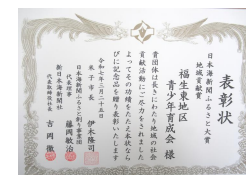 表彰状
日本海新聞ふるさと大賞
地域貢献賞
福生東地区
青少年育成会 様
貴団体は長きにわたり地域の社会
貢献活動にご尽力をされました
よってその功績をたたえ本状なら
びに記念品を贈り表彰いたします
令和七年三月二十五日
米子市長 伊木隆司
日本海新聞ふるさと創り事業団
代表理事 藤岡敏治
新日本海新聞社
代表取締役社長 吉岡徹